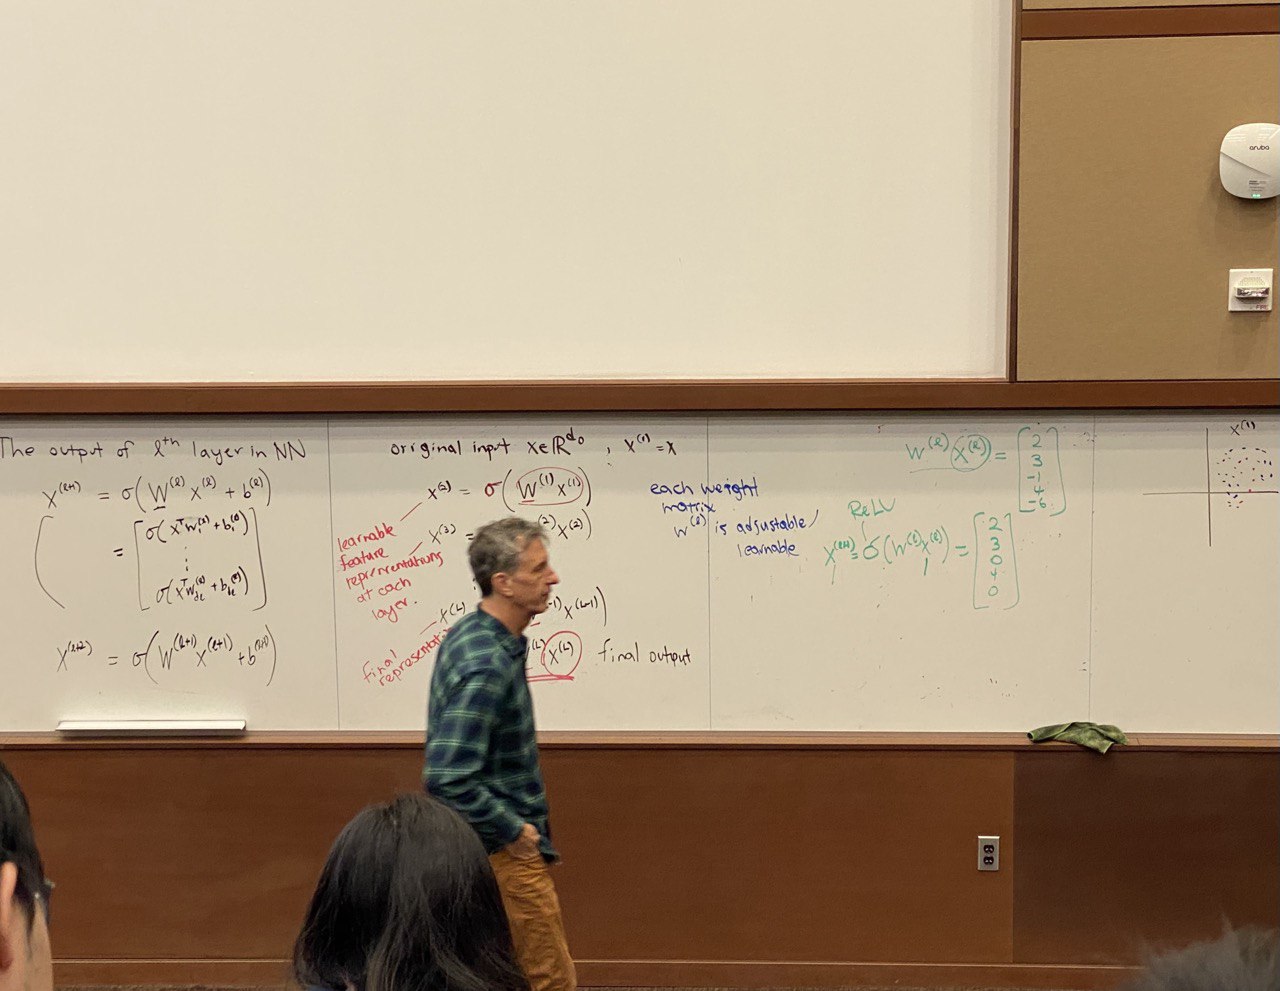 The output of lᵗʰ layer in NN
x⁽ˡ⁺¹⁾ = σ(W⁽ˡ⁾x⁽ˡ⁾ + b⁽ˡ⁾)
= [σ(xᵀw₁⁽ˡ⁾ + b₁⁽ˡ⁾)
⋮
σ(xᵀw_dₗ⁽ˡ⁾ + b_dₗ⁽ˡ⁾)]
x⁽ˡ⁺²⁾ = σ(W⁽ˡ⁺¹⁾x⁽ˡ⁺¹⁾ + b⁽ˡ⁺¹⁾)
original input x∈ℝᵈ⁰, x⁽¹⁾ = x
x⁽²⁾ = σ(W⁽¹⁾x⁽¹⁾)
x⁽³⁾ = ⁽²⁾x⁽²⁾)
learnable
feature
representations
at each
layer.
x⁽ᴸ⁾ ⁻¹⁾x⁽ᴸ⁻¹⁾)
final
⁽ᴸ⁾x⁽ᴸ⁾ final output
each weight
matrix
W⁽ˡ⁾ is adjustable/
learnable
W⁽ˡ⁾x⁽ˡ⁾ = [2
3
-1
4
-6]
ReLU
x⁽ˡ⁺¹⁾ = σ(W⁽ˡ⁾x⁽ˡ⁾) = [2
3
0
4
0]
x⁽¹⁾
aruba
FIRE